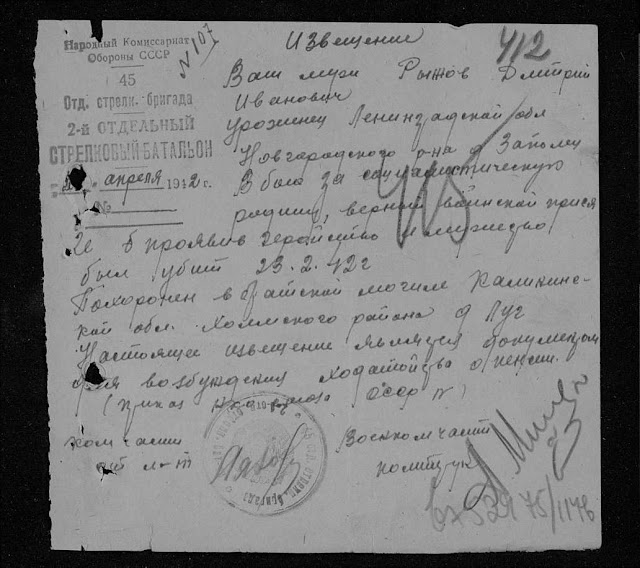 Народный Комиссариат
Обороны СССР
45
Отд. стрелк. бригада
2-й ОТДЕЛЬНЫЙ
СТРЕЛКОВЫЙ БАТАЛЬОН
апреля 1942 г.
№
N 107
Извещение
412
Ваш муж Рыжов Дмитрий
Иванович
Уроженец Ленинградской обл
Новгородского р-на д
В бою за социалистическую
родину, верный воинской прися
ге проявив геройство и мужество
был убит 23.2.42г
Похоронен в братской могиле Калининс-
кой обл. Холмского района д Луг
Настоящее извещение является документом
для возбуждения ходатайства о пенсии.
(Приказ СССР N )
ком части
Военком части
политрук